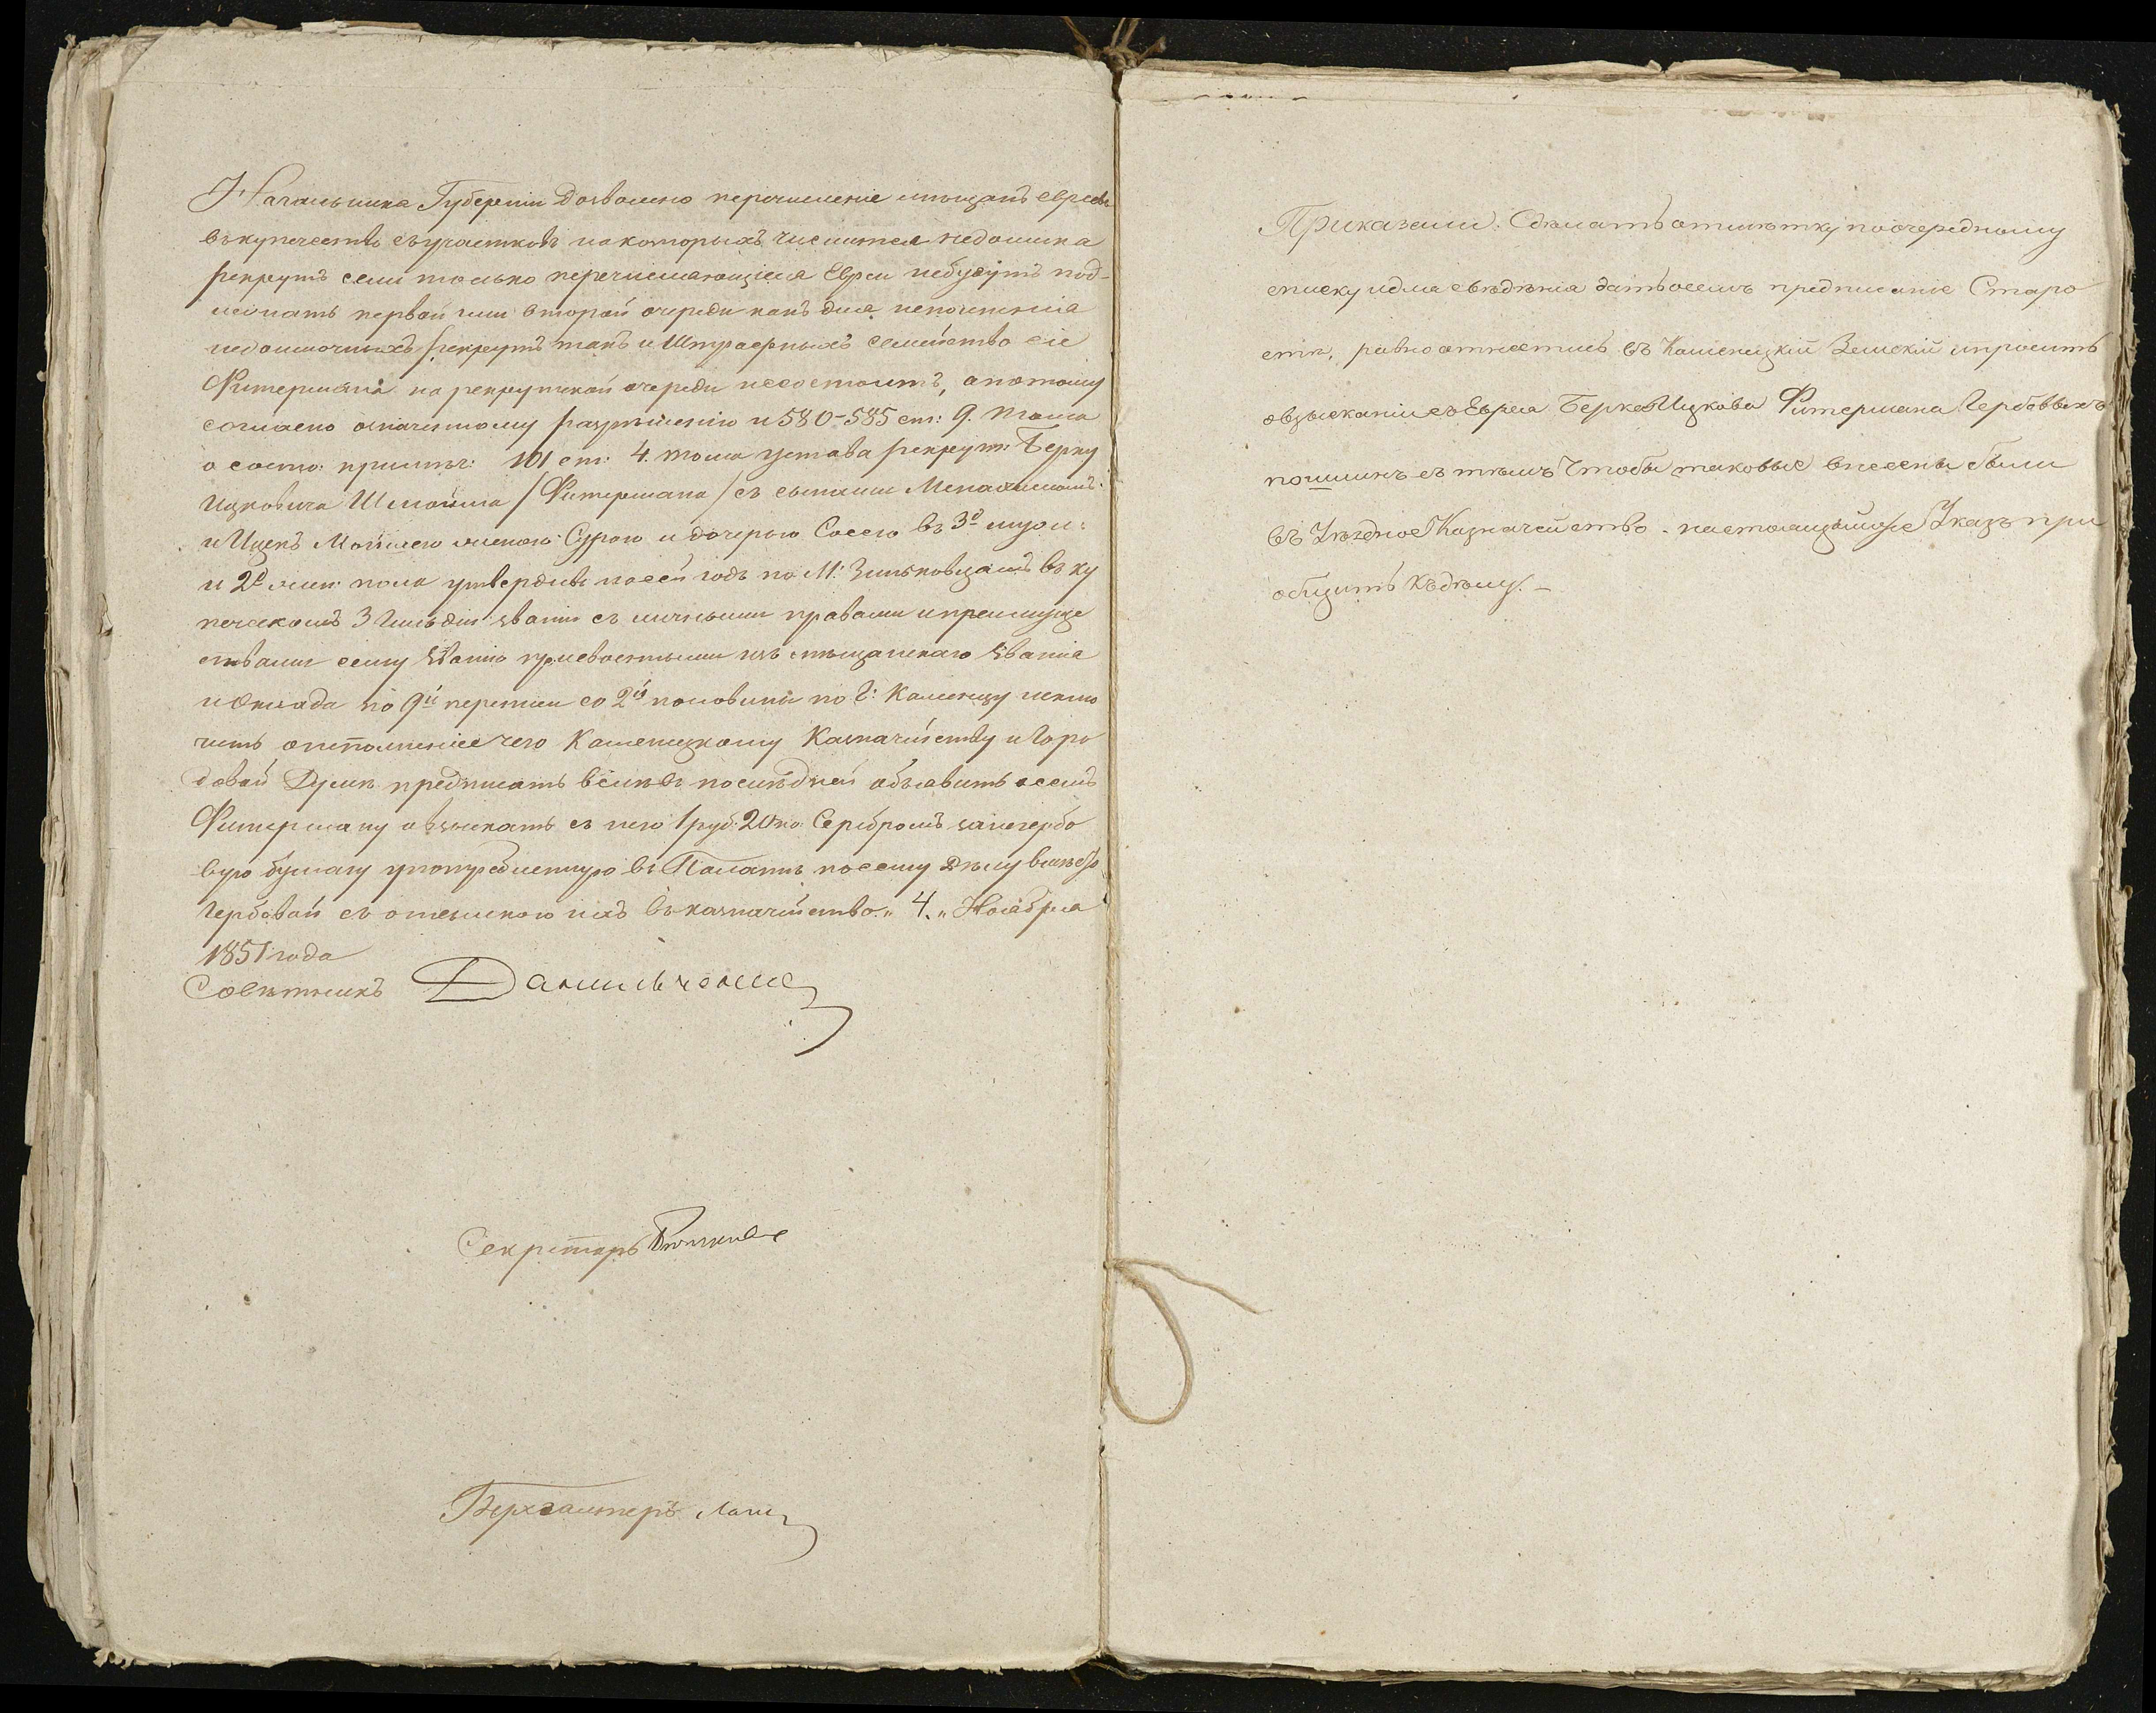 Начальника Губерніи дозволено перечисленіе мѣщанъ евреевъ
въ купечество съ участковъ на которыхъ числится недоимка
рекрутъ если только перечисляющіеся Евреи небудутъ под-
лежать первой или второй очереди какъ для пополненія
недоимочныхъ рекрутъ такъ и Штрафныхъ семейство сіе
Фитермана на рекрутской очереди несостоитъ, апотому
согласно означенному разрѣшенію и 580-585 ст: 9. тома
о состо: примѣч: 101 ст: 4. тома устава рекрут: Берку
Ицковича Шмойла /Фитермана/ съ сынами Менахимомъ
и Ицекъ Мошкою женою Сурою и дочерью Сосею въ 3º муж:
и 2º жен: пола утвердивъ насей годъ по М: Зиньковцамъ въ ку
печескомъ 3 Гильдіи званіи съ личными правами и преимуще
ствами сему званію присвоенными изъ мѣщанскаго званія
и Оклада по 9й переписи со 2й половины по Г: Каменцу исклю
чить оисполненіе чего Каменецкому Казначейству и Горо
довой Думѣ предписать велѣвъ послѣдней объявить осемъ
Фитерману и взыскать съ него 1 руб: 20 ко: Серебромъ занегербо
вую бумагу употребленную въ Палатѣ посему Дѣлу вмѣсто
Гербовой съ отсылкою ихъ въ казначейство. „4.„ Ноября
1851 года
Совѣтникъ
Секретарь
Бухгалтеръ
Приказали: Сдѣлать отмѣтку по очередному
списку идля свѣдѣнія дать осемъ предписаніе Старо
стѣ, равно отнестись въ Каменецкій Земскій ипросить
овзысканіи съ Еврея Берка Ицкова Фитермана Гербовыхъ
пошлинъ съ тѣмъ Чтобы таковые внесены были
въ Уѣздное Казначейство. настоящій же Указъ прі
общить къ дѣлу. –